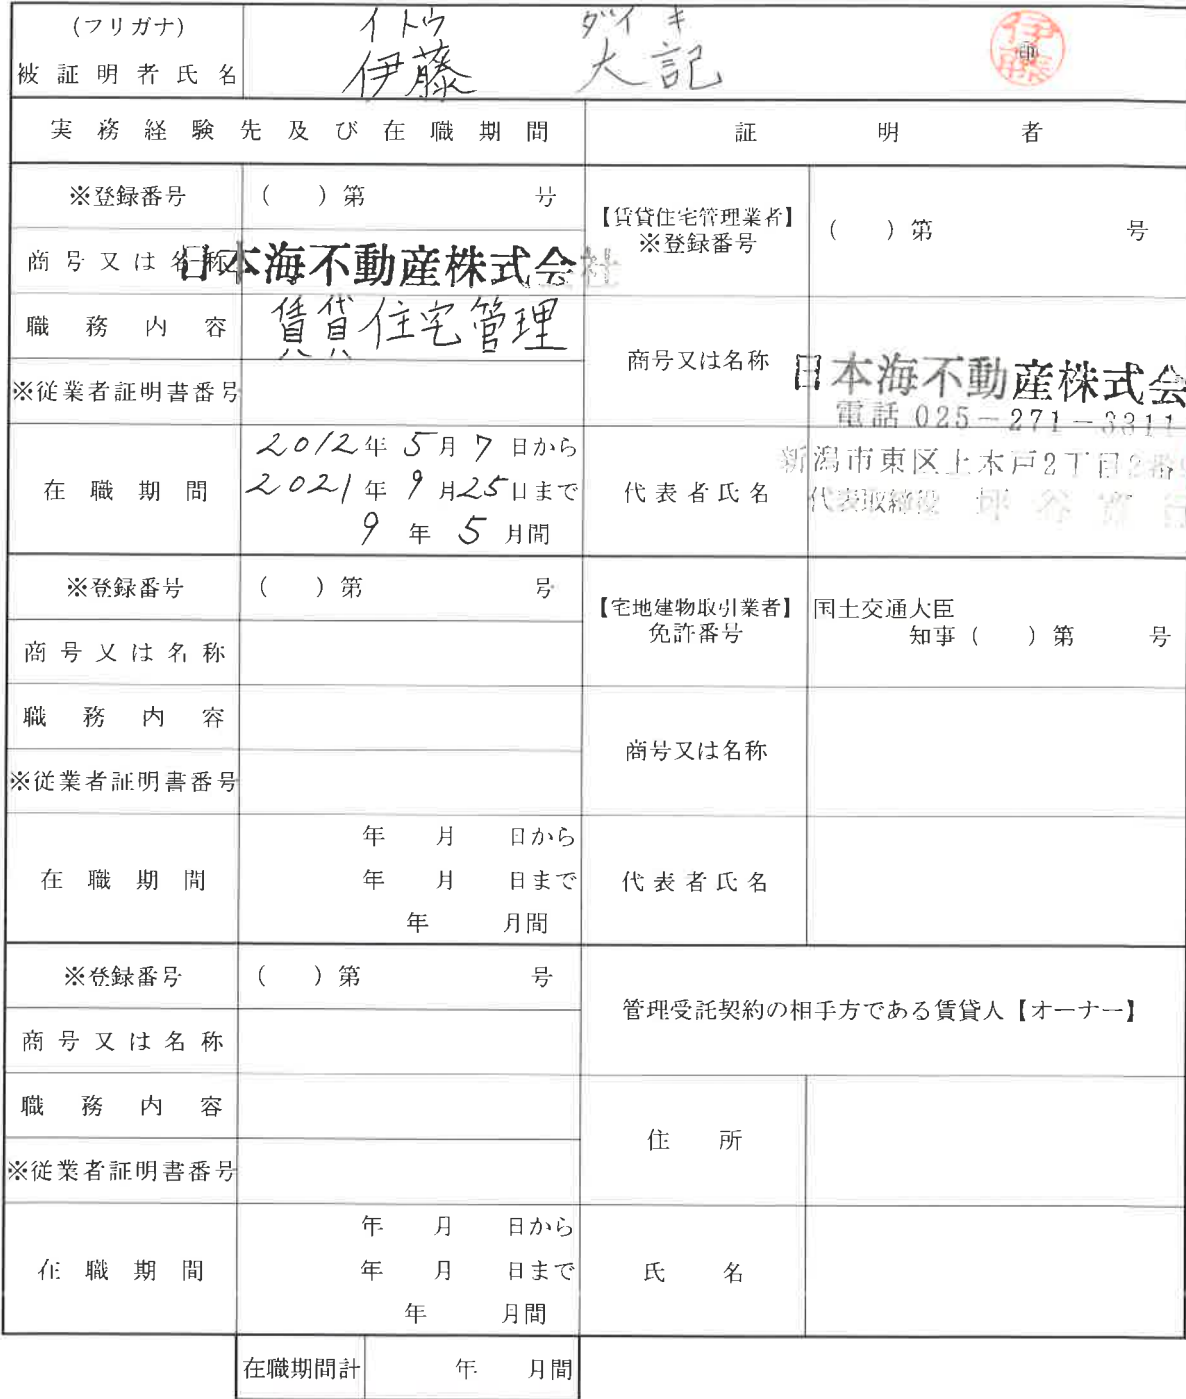 (フリガナ) イトウ ダイキ
被証明者氏名 伊藤 大記 印 伊藤
実務経験先及び在職期間 証明者
※登録番号 ( )第 号
商号又は名称 日本海不動産株式会社
職務内容 賃貸住宅管理
※従業者証明書番号
在職期間
2012年5月7日から
2021年9月25日まで
9年5月間
【賃貸住宅管理業者】
※登録番号
( )第 号
商号又は名称 日本海不動産株式会
電話 025-271-3311
新潟市東区上木戸2丁目2番
代表者氏名 代表取締役
※登録番号 ( )第 号
商号又は名称
職務内容
※従業者証明書番号
在職期間
年 月 日から
年 月 日まで
年 月間
【宅地建物取引業者】
免許番号
国土交通大臣
知事( )第 号
商号又は名称
代表者氏名
※登録番号 ( )第 号
商号又は名称
職務内容
※従業者証明書番号
在職期間
年 月 日から
年 月 日まで
年 月間
管理受託契約の相手方である賃貸人【オーナー】
住所
氏名
在職期間計 年 月間